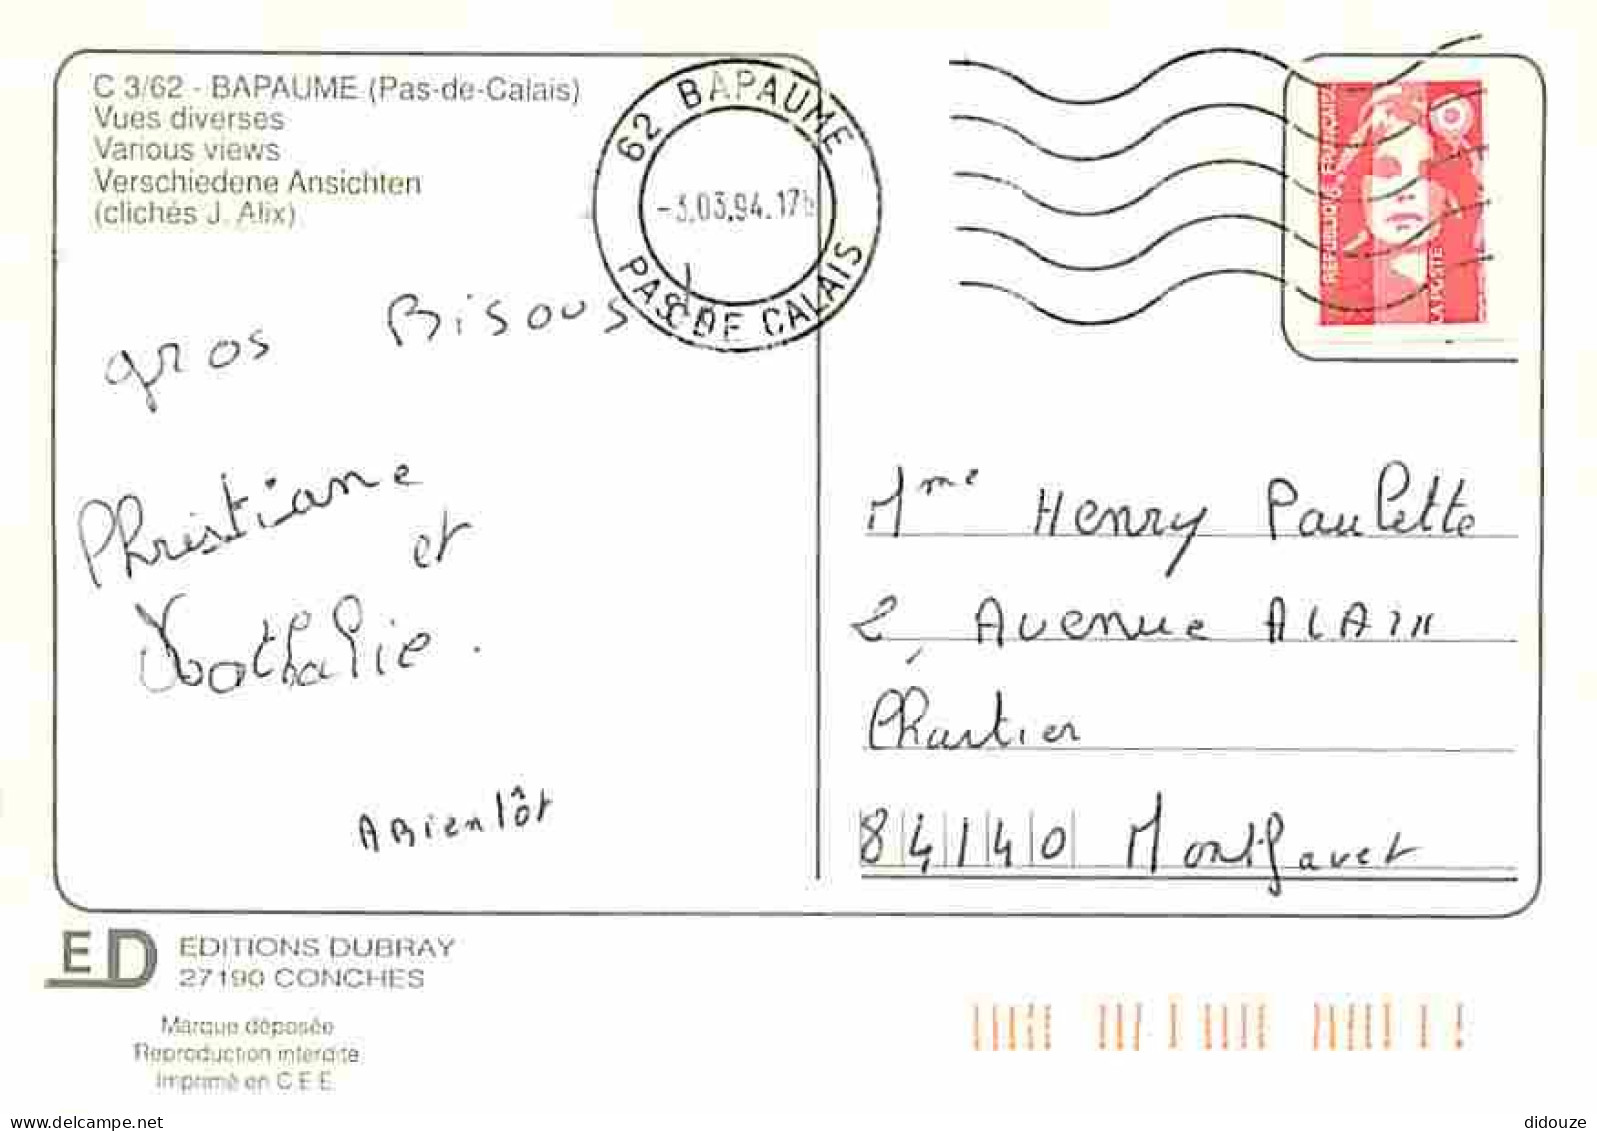 C 3/62 - BAPAUME (Pas-de-Calais)
Vues diverses
Various views
Verschiedene Ansichten
(clichés J. Alix)
62 BAPAUME
-3.03.94.17h
PAS DE CALAIS
REPUBLIQUE FRANCAISE
LA POSTE
gros Bisous
Christiane
et
Nathalie.
A Bientôt
Mme Henry Paulette
2 Avenue ALAIN
Chartier
84140 Montfavet
ED
EDITIONS DUBRAY
27190 CONCHES
Marque déposée
Reproduction interdite
Imprimé en C.E.E.
delcampe.net
didouze